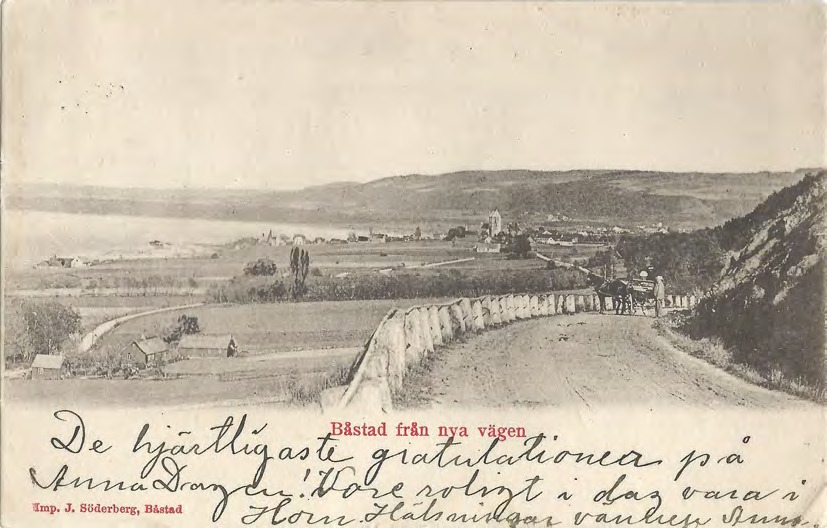 Båstad från nya vägen
De hjärtligaste gratulationer på
Anna Dagen! Vore roligt i dag vara i
Imp. J. Söderberg, Båstad
Horn. Hälsningar